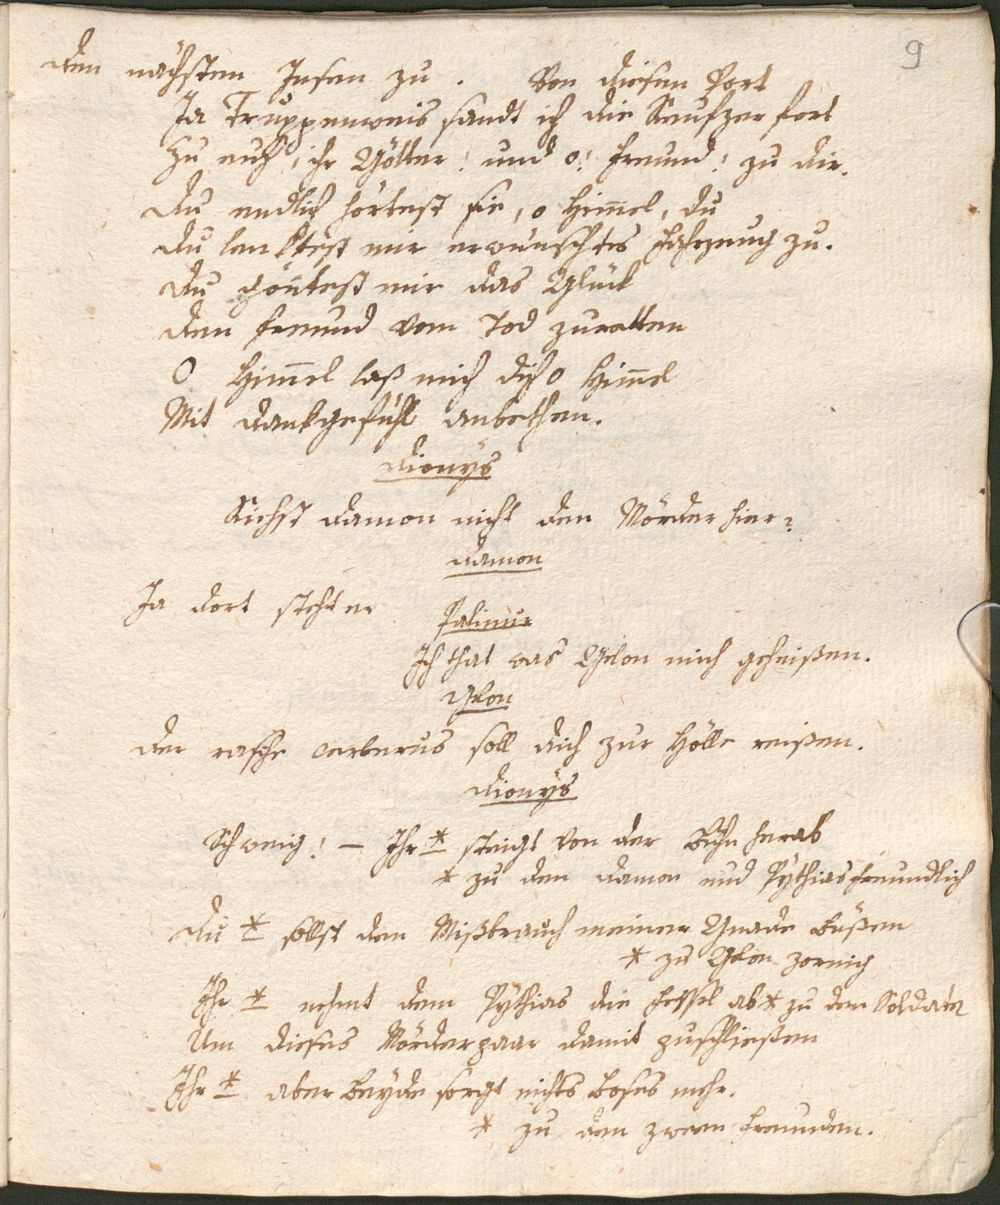 9
den nächsten Insen zu. Von diesen Port
Ja Truppenweis sandt ich die Seufzer fort
Zu euch, ihr Götter! und o! Freund! zu dir.
Du endlich hörtest sie, o Him̄el, du
Du lenktest mir erwünschtes Fahrzeug zu.
Du gön̄test mir das Glück
den Freund vom Tod zuretten
O Him̄el laß mich dich o Him̄el
Mit Dankgefühl anbethen.
Dionys
Siehst Damon nicht den Mörder hier?
Damon
Ja dort steht er
Palinur
Ich that was Gelon mich geheißen.
Gelon
der rasche Cerberus soll dich zur Hölle reißen.
Dionys
Schweig! – Ihr * steigt von der Bühn herab
* zu den Damon und Pythias freundlich
Du * sollst den Mißbrauch meiner Gnade büßen
* zu Gelon zornig
Ihr * nehmt dem Pythias die Fessel ab * zu den Soldaten
Um dieses Mörderpaar damit zuschließen
Ihr * aber beyde sorgt nichts böses mehr.
* zu den zween Freunden.